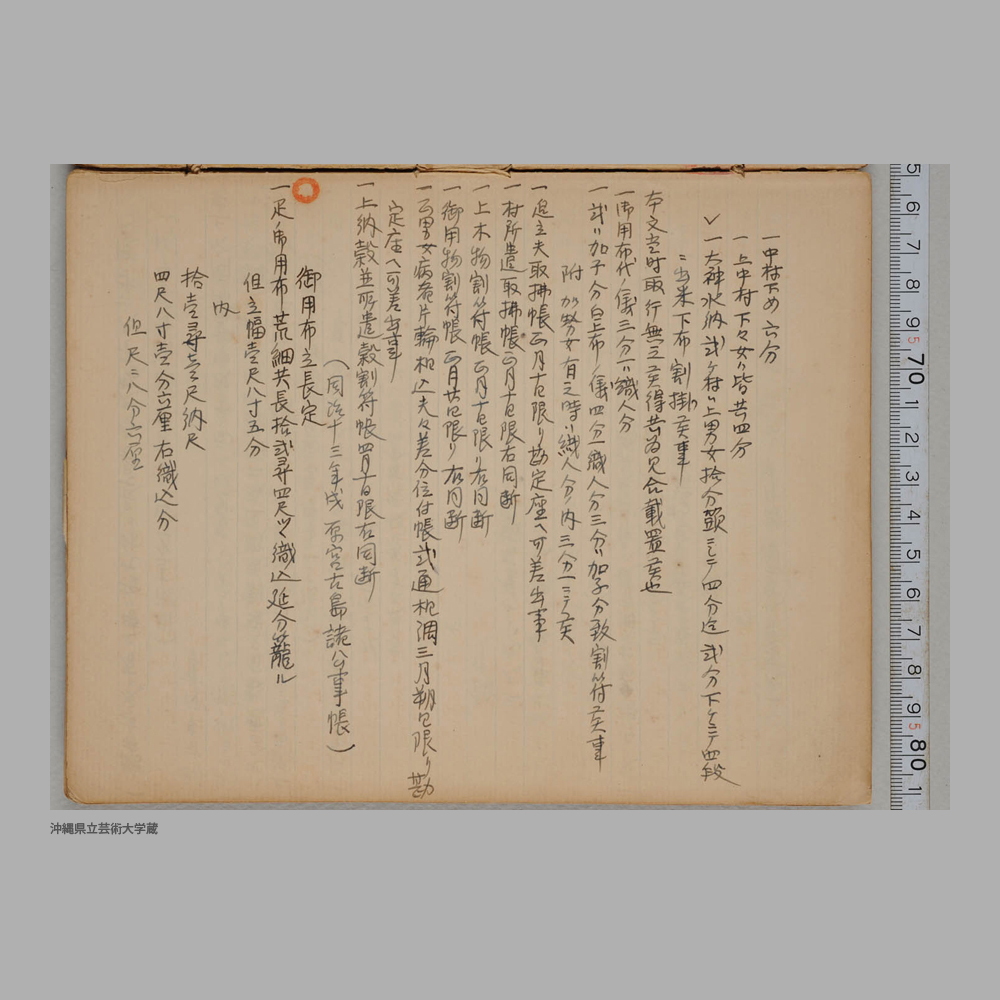 一中村下め六分
一上中村下々女ハ皆廿四分
一大神水納弐ヶ村ハ上男女拾分頭ミニテ四分迄弐分下ケニテ四段
ニ出米下布割掛候事
本文当時取行無之候得共為見合載置候也
一御用布代ノ儀三分一ハ織人分
一弐ハ加子分白上布ノ儀四分一織人分三分ハ加子分致割符候事
附 加勢女有之時ハ織人分ノ内三分一ニテ候
一追立夫取払帳正月十日限り勘定座ヘ可差出事
一村所遣取払帳正月十日限右同断
一上木物割符帳正月十日限り右同断
一御用物割符帳正月廿日限り右同断
一正男女病者片輪相込夫々差分位付帳弐通相調三月朔日限り勘
定座ヘ可差出事
一上納穀並所遣穀割符帳四月十日限右同断
(同治十三年戌 原宮古島諸公事帳)
御用布立長定
一疋ノ御用布荒細共長拾弐尋四尺ツヽ織込延分籠ル
但立幅壱尺八寸五分
内
拾壱尋壱尺納尺
四尺八寸壱分六厘右織込分
但尺ニ八分六厘
5 6 7 8 9 5 70 1 2 3 4 5 6 7 8 9 5 80 1
沖縄県立芸術大学蔵